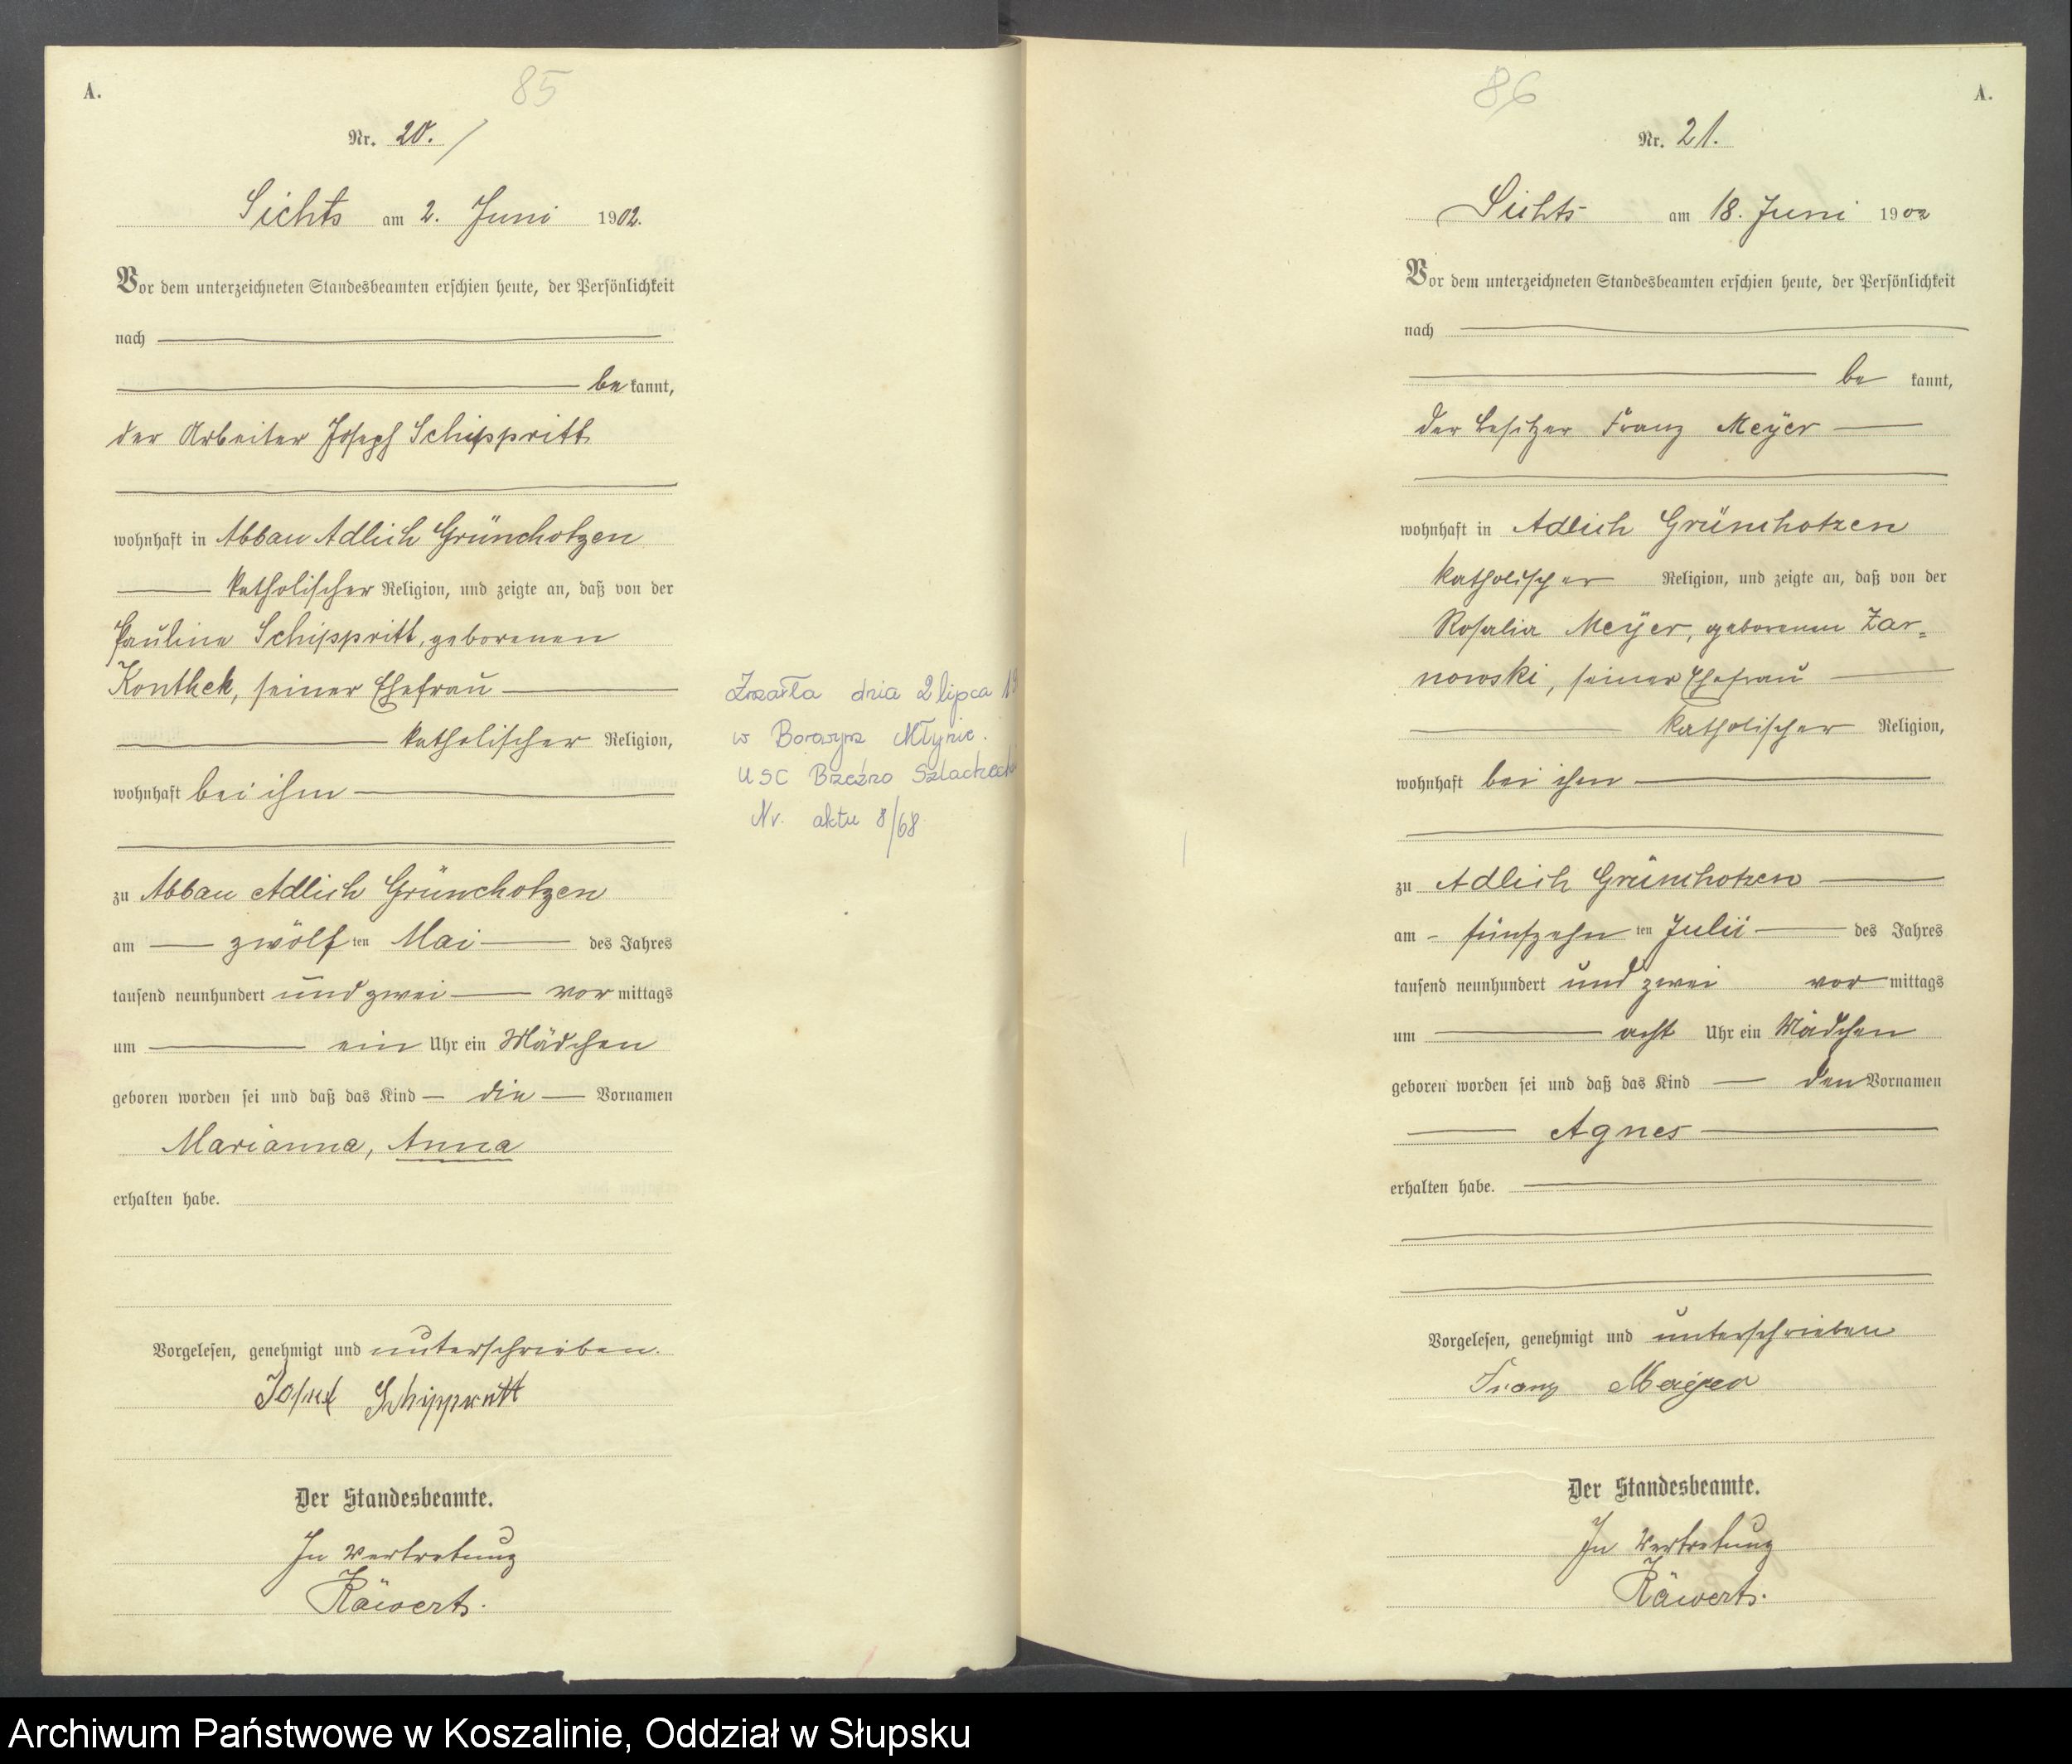 A.
85
Nr. 20.
Sichts am 2. Juni 1902.
Vor dem unterzeichneten Standesbeamten erschien heute, der Persönlichkeit
nach
bekannt,
der Arbeiter Joseph Schippritt
wohnhaft in Abbau Adlich Grünchotzen
katholischer Religion, und zeigte an, daß von der
Pauline Schippritt, geborenen
Konthek, seiner Ehefrau
katholischer Religion,
wohnhaft bei ihm
zu Abbau Adlich Grünchotzen
am zwölften Mai des Jahres
tausend neunhundert und zwei vormittags
um ein Uhr ein Mädchen
geboren worden sei und daß das Kind die Vornamen
Marianna, Anna
erhalten habe.
Vorgelesen, genehmigt und unterschrieben.
Josef Schippritt
Der Standesbeamte.
In Vertretung
Räwerts.
Zmarła dnia 2 lipca 19
w Borowym Młynie.
USC Brzeźno Szlacheck
Nr. aktu 8/68
86
A.
Nr. 21.
Sichts am 18. Juni 1902
Vor dem unterzeichneten Standesbeamten erschien heute, der Persönlichkeit
nach
bekannt,
der Besitzer Franz Meÿer
wohnhaft in Adlich Grünchotzen
katholischer Religion, und zeigte an, daß von der
Rosalia Meÿer, geborenen Zar=
nowski, seiner Ehefrau
katholischer Religion,
wohnhaft bei ihm
zu Adlich Grünchotzen
am fünfzehnten Julii des Jahres
tausend neunhundert und zwei vormittags
um acht Uhr ein Mädchen
geboren worden sei und daß das Kind den Vornamen
Agnes
erhalten habe.
Vorgelesen, genehmigt und unterschrieben
Franz Meÿer
Der Standesbeamte.
In Vertretung
Räwerts.
Archiwum Państwowe w Koszalinie, Oddział w Słupsku